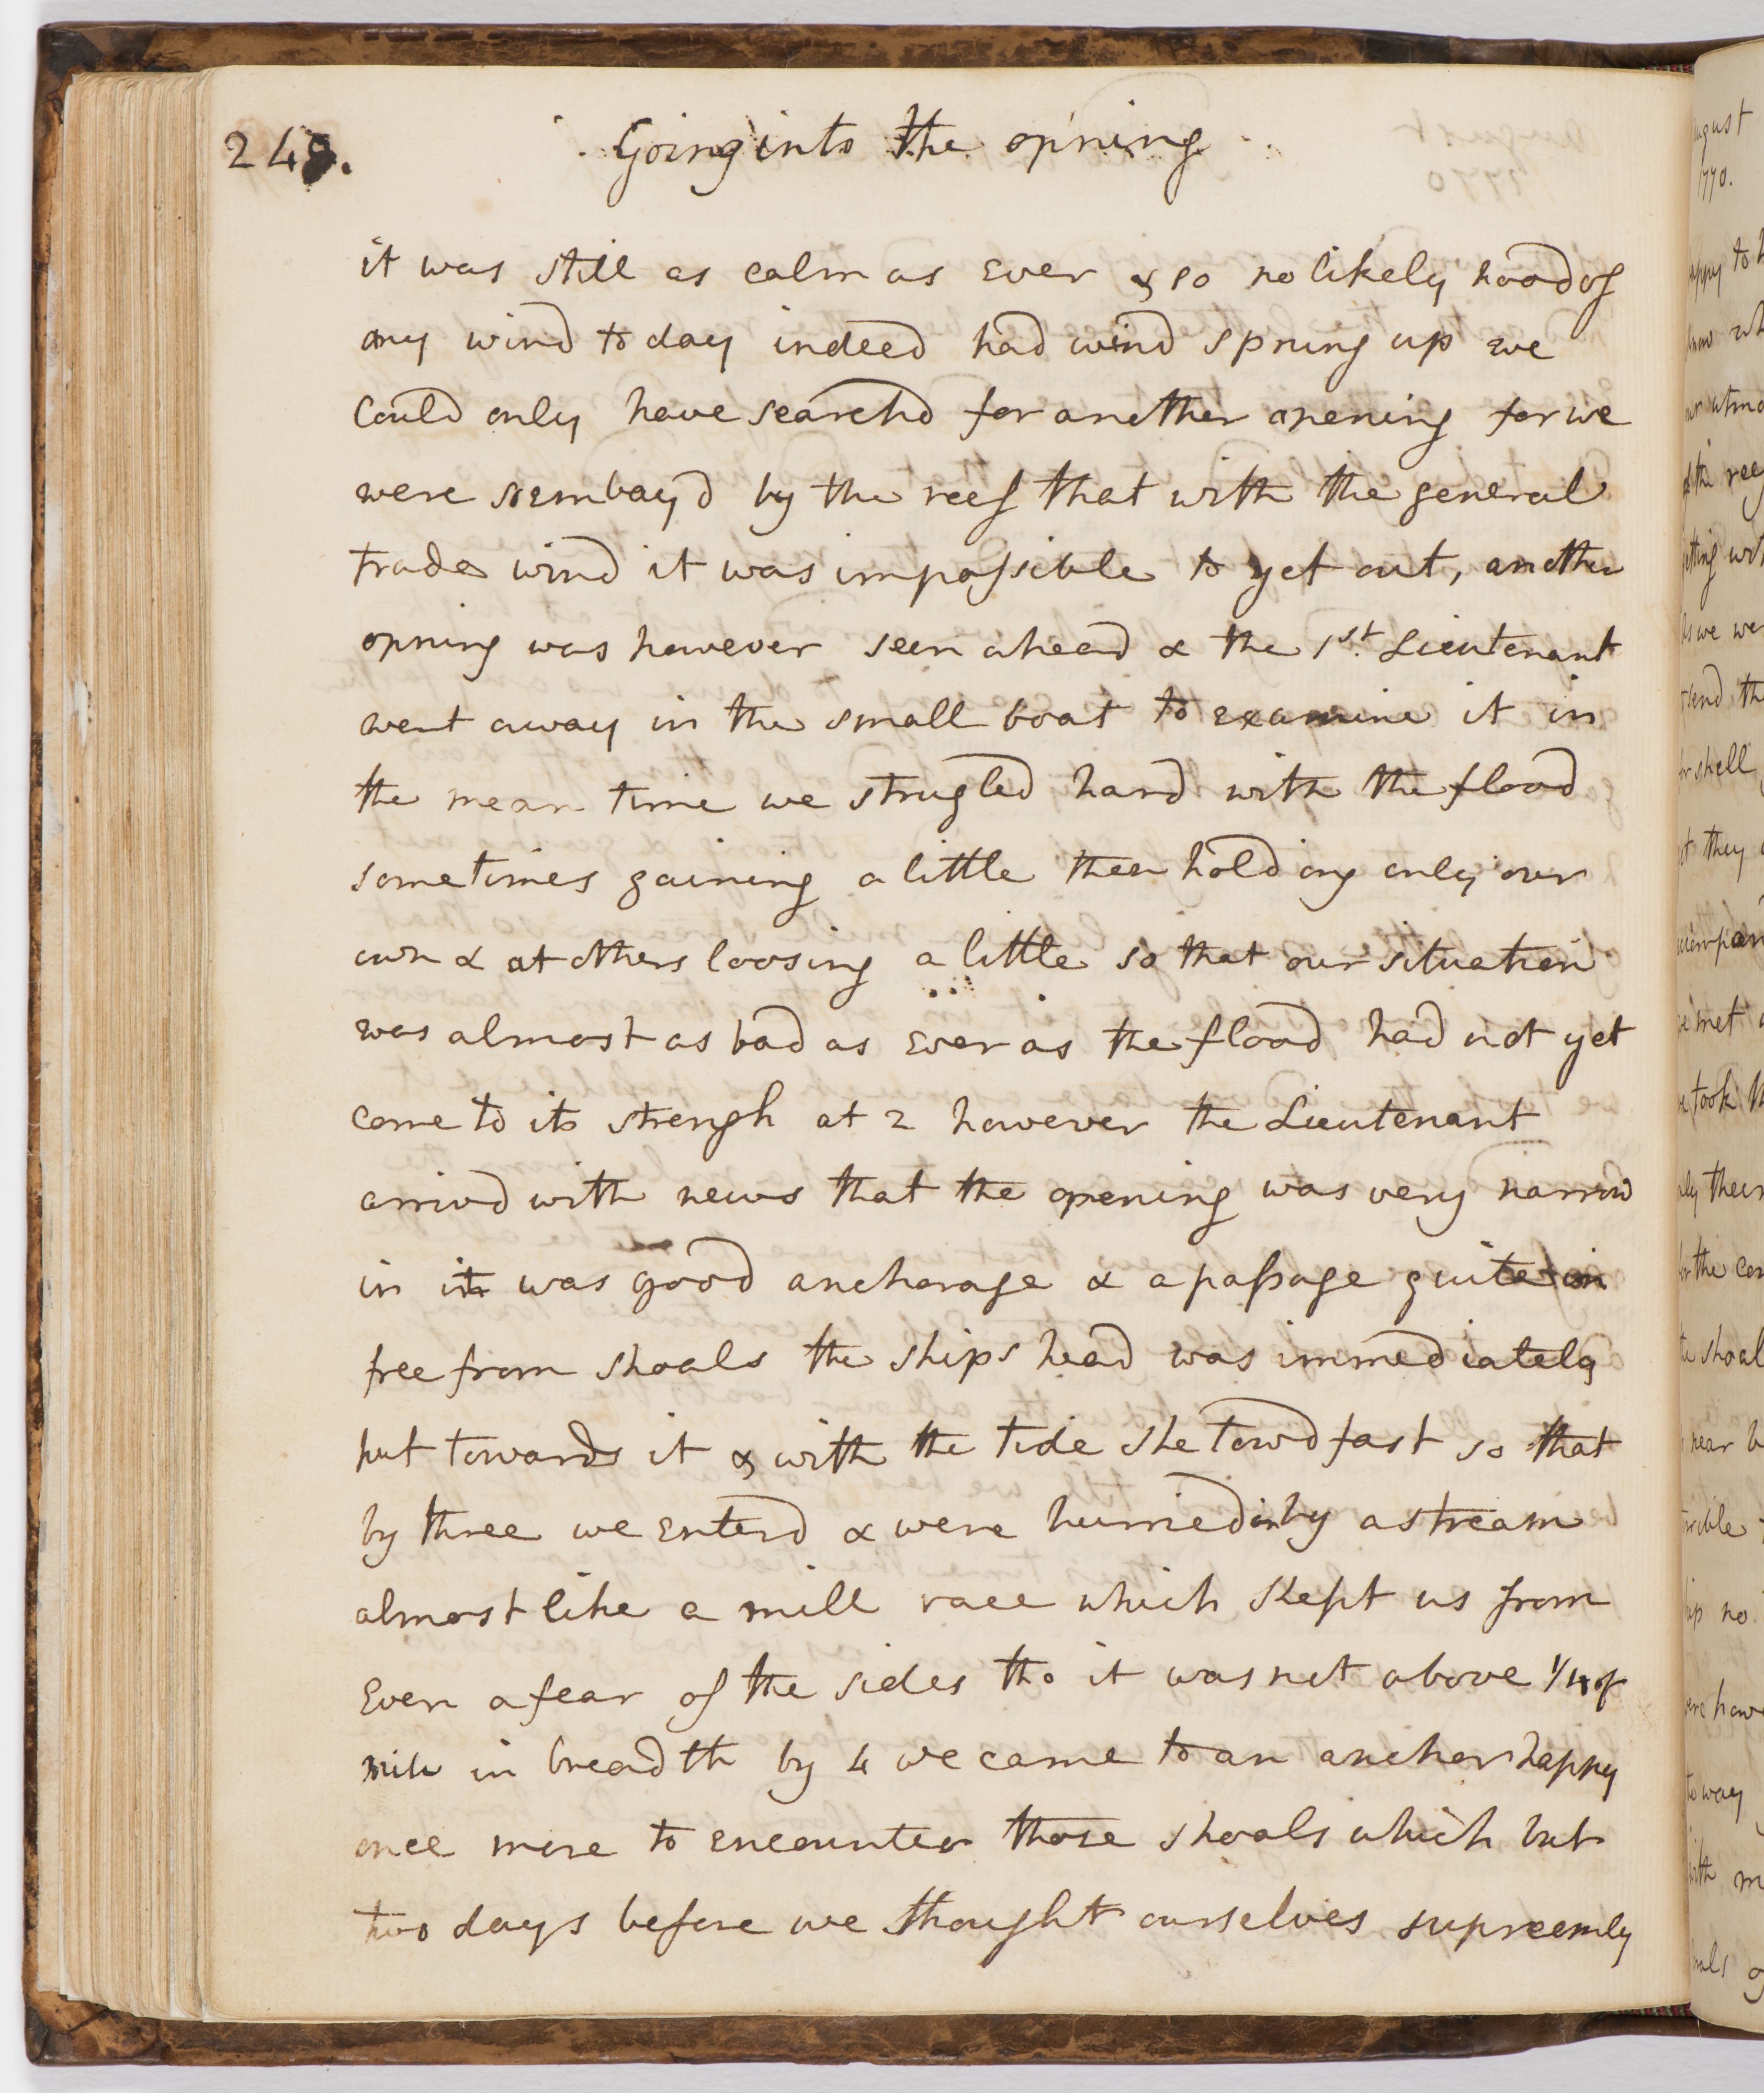 248.
Going into the op'ning
it was still as calm as ever & so no likely hood of
any wind to day indeed had wind sprung up we
could only have searchd for another opening for we
were so embay'd by the reef that with the general
trade wind it was impossible to get out, another
opning was however seen ahead & the 1st. Lieutenant
went away in the small boat to examine it in
the mean time we strugled hard with the flood
sometimes gaining a little then holding only our
own & at others loosing a little so that our situation
was almost as bad as ever as the flood had not yet
come to its strengh at 2 however the Lieutenant
arrivd with news that the opening was very narrow
in it was good anchorage & a passage quite in
free from shoals the ships head was immediately
put towards it & with the tide she towd fast so that
by three we enterd & were hurried in by a stream
almost like a mill race which kept us from
Even a fear of the sides tho it was not above 1/4 of
mile in breadth by 4 we came to an anchor happy
once more to encounter those shoals which but
two days before we thought ourselves supreemly
August
1770.